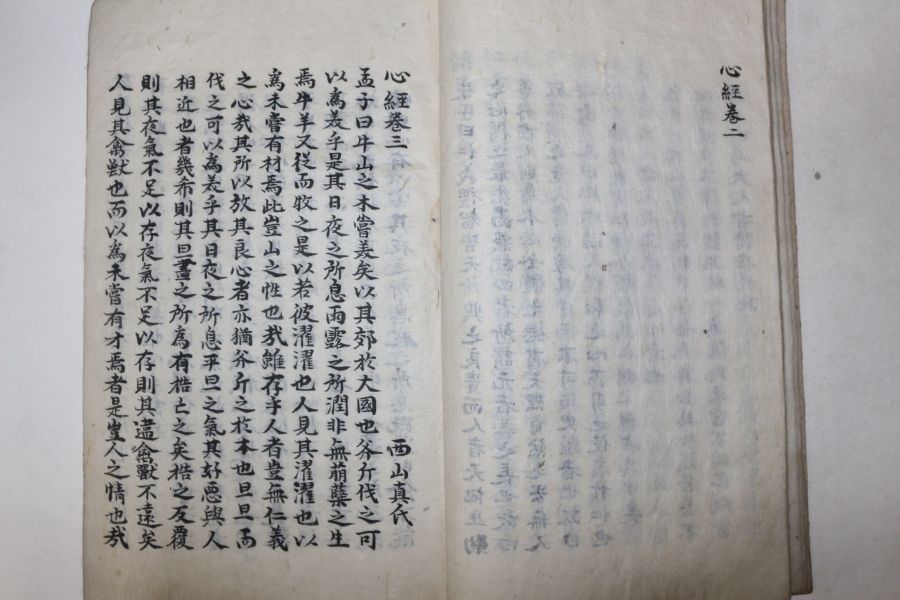 心經卷二
心經卷三 西山真氏
孟子曰牛山之木嘗羙矣以其郊於大國也斧斤伐之可
以爲羙乎是其日夜之所息雨露之所潤非無萌蘖之生
焉牛羊又從而牧之是以若彼濯濯也人見其濯濯也以
爲未嘗有材焉此豈山之性也㦲雖存乎人者豈無仁義
之心㦲其所以放其良心者亦猶斧斤之於木也旦旦而
伐之可以爲羙乎其日夜之所息平旦之氣其好惡與人
相近也者幾希則其旦晝之所爲有梏亡之矣梏之反覆
則其夜氣不足以存夜氣不足以存則其違禽獸不遠矣
人見其禽獸也而以爲未嘗有才焉者是豈人之情也㦲